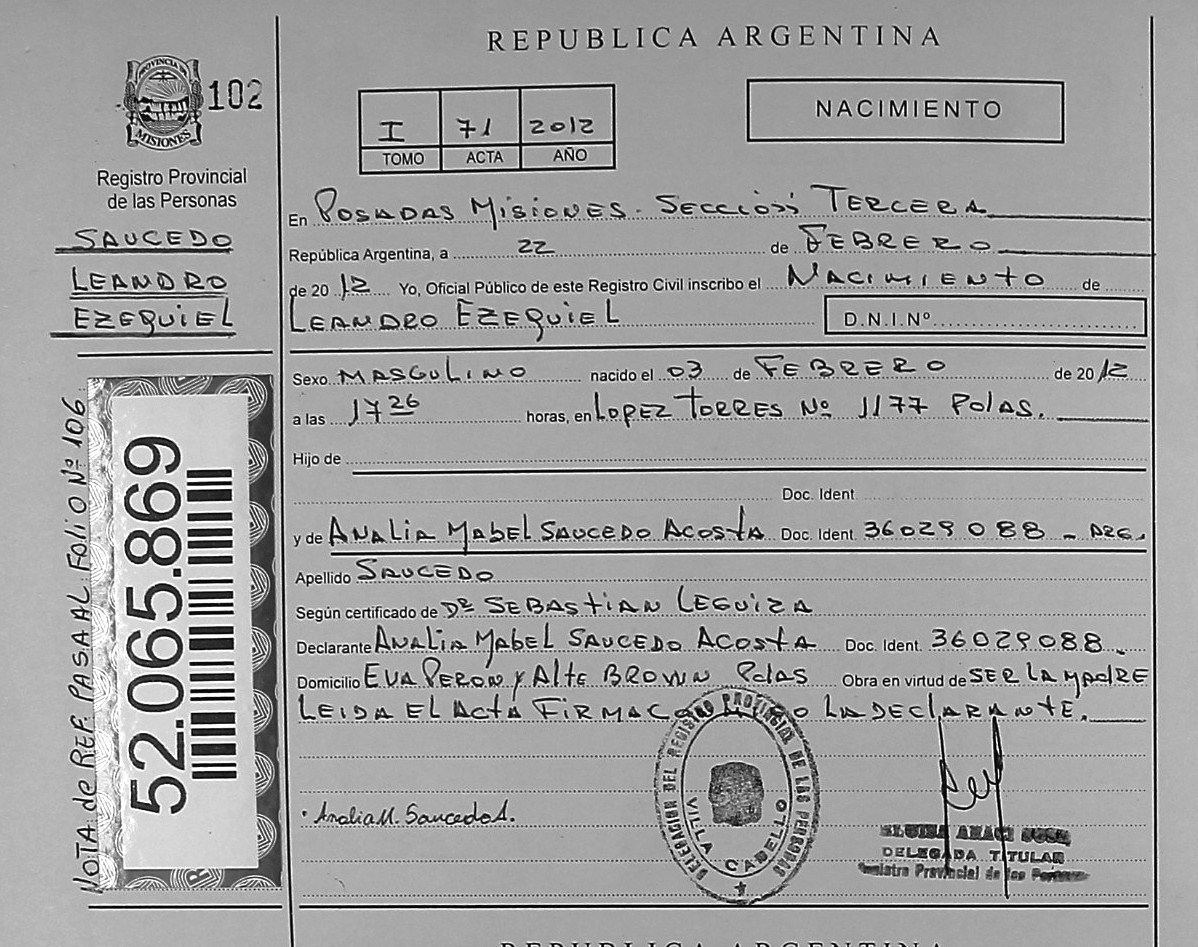 REPUBLICA ARGENTINA
PROVINCIA DE
MISIONES
102
Registro Provincial
de las Personas
SAUCEDO
LEANDRO
EZEQUIEL
NOTA de REF. PASA AL FOLIO Nº 106
52.065.869
I 71 2012
TOMO ACTA AÑO
NACIMIENTO
En POSADAS MISIONES. SECCIÓN TERCERA
República Argentina, a 22 de FEBRERO
de 2012 Yo, Oficial Público de este Registro Civil inscribo el NACIMIENTO de
LEANDRO EZEQUIEL D.N.I.Nº
Sexo MASCULINO nacido el 03 de FEBRERO de 2012
a las 17 26 horas, en LOPEZ TORRES Nº 1177 Pdas.
Hijo de
Doc. Ident
y de ANALIA MABEL SAUCEDO ACOSTA Doc. Ident. 36029088 - ARG.
Apellido SAUCEDO
Según certificado de Dr SEBASTIAN LEGUIZA
Declarante ANALIA MABEL SAUCEDO ACOSTA Doc. Ident. 36029088.
Domicilio EVA PERON y Alte BROWN Pdas Obra en virtud de SER LA MADRE
LEIDA EL ACTA FIRMA CONMIGO LA DECLARANTE.
Analia M. Saucedo A.
DELEGACION DEL REGISTRO PROVINCIAL DE LAS PERSONAS
VILLA CABELLO
DELEGADA TITULAR
Registro Provincial de las Personas
REPUBLICA ARGENTINA